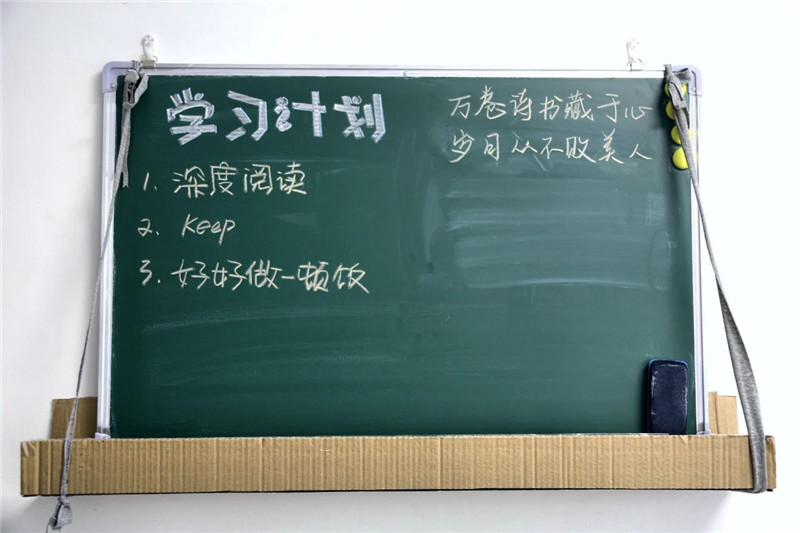 学习计划
1. 深度阅读
2. Keep
3. 好好做一顿饭
万卷诗书藏于心
岁月从不败美人